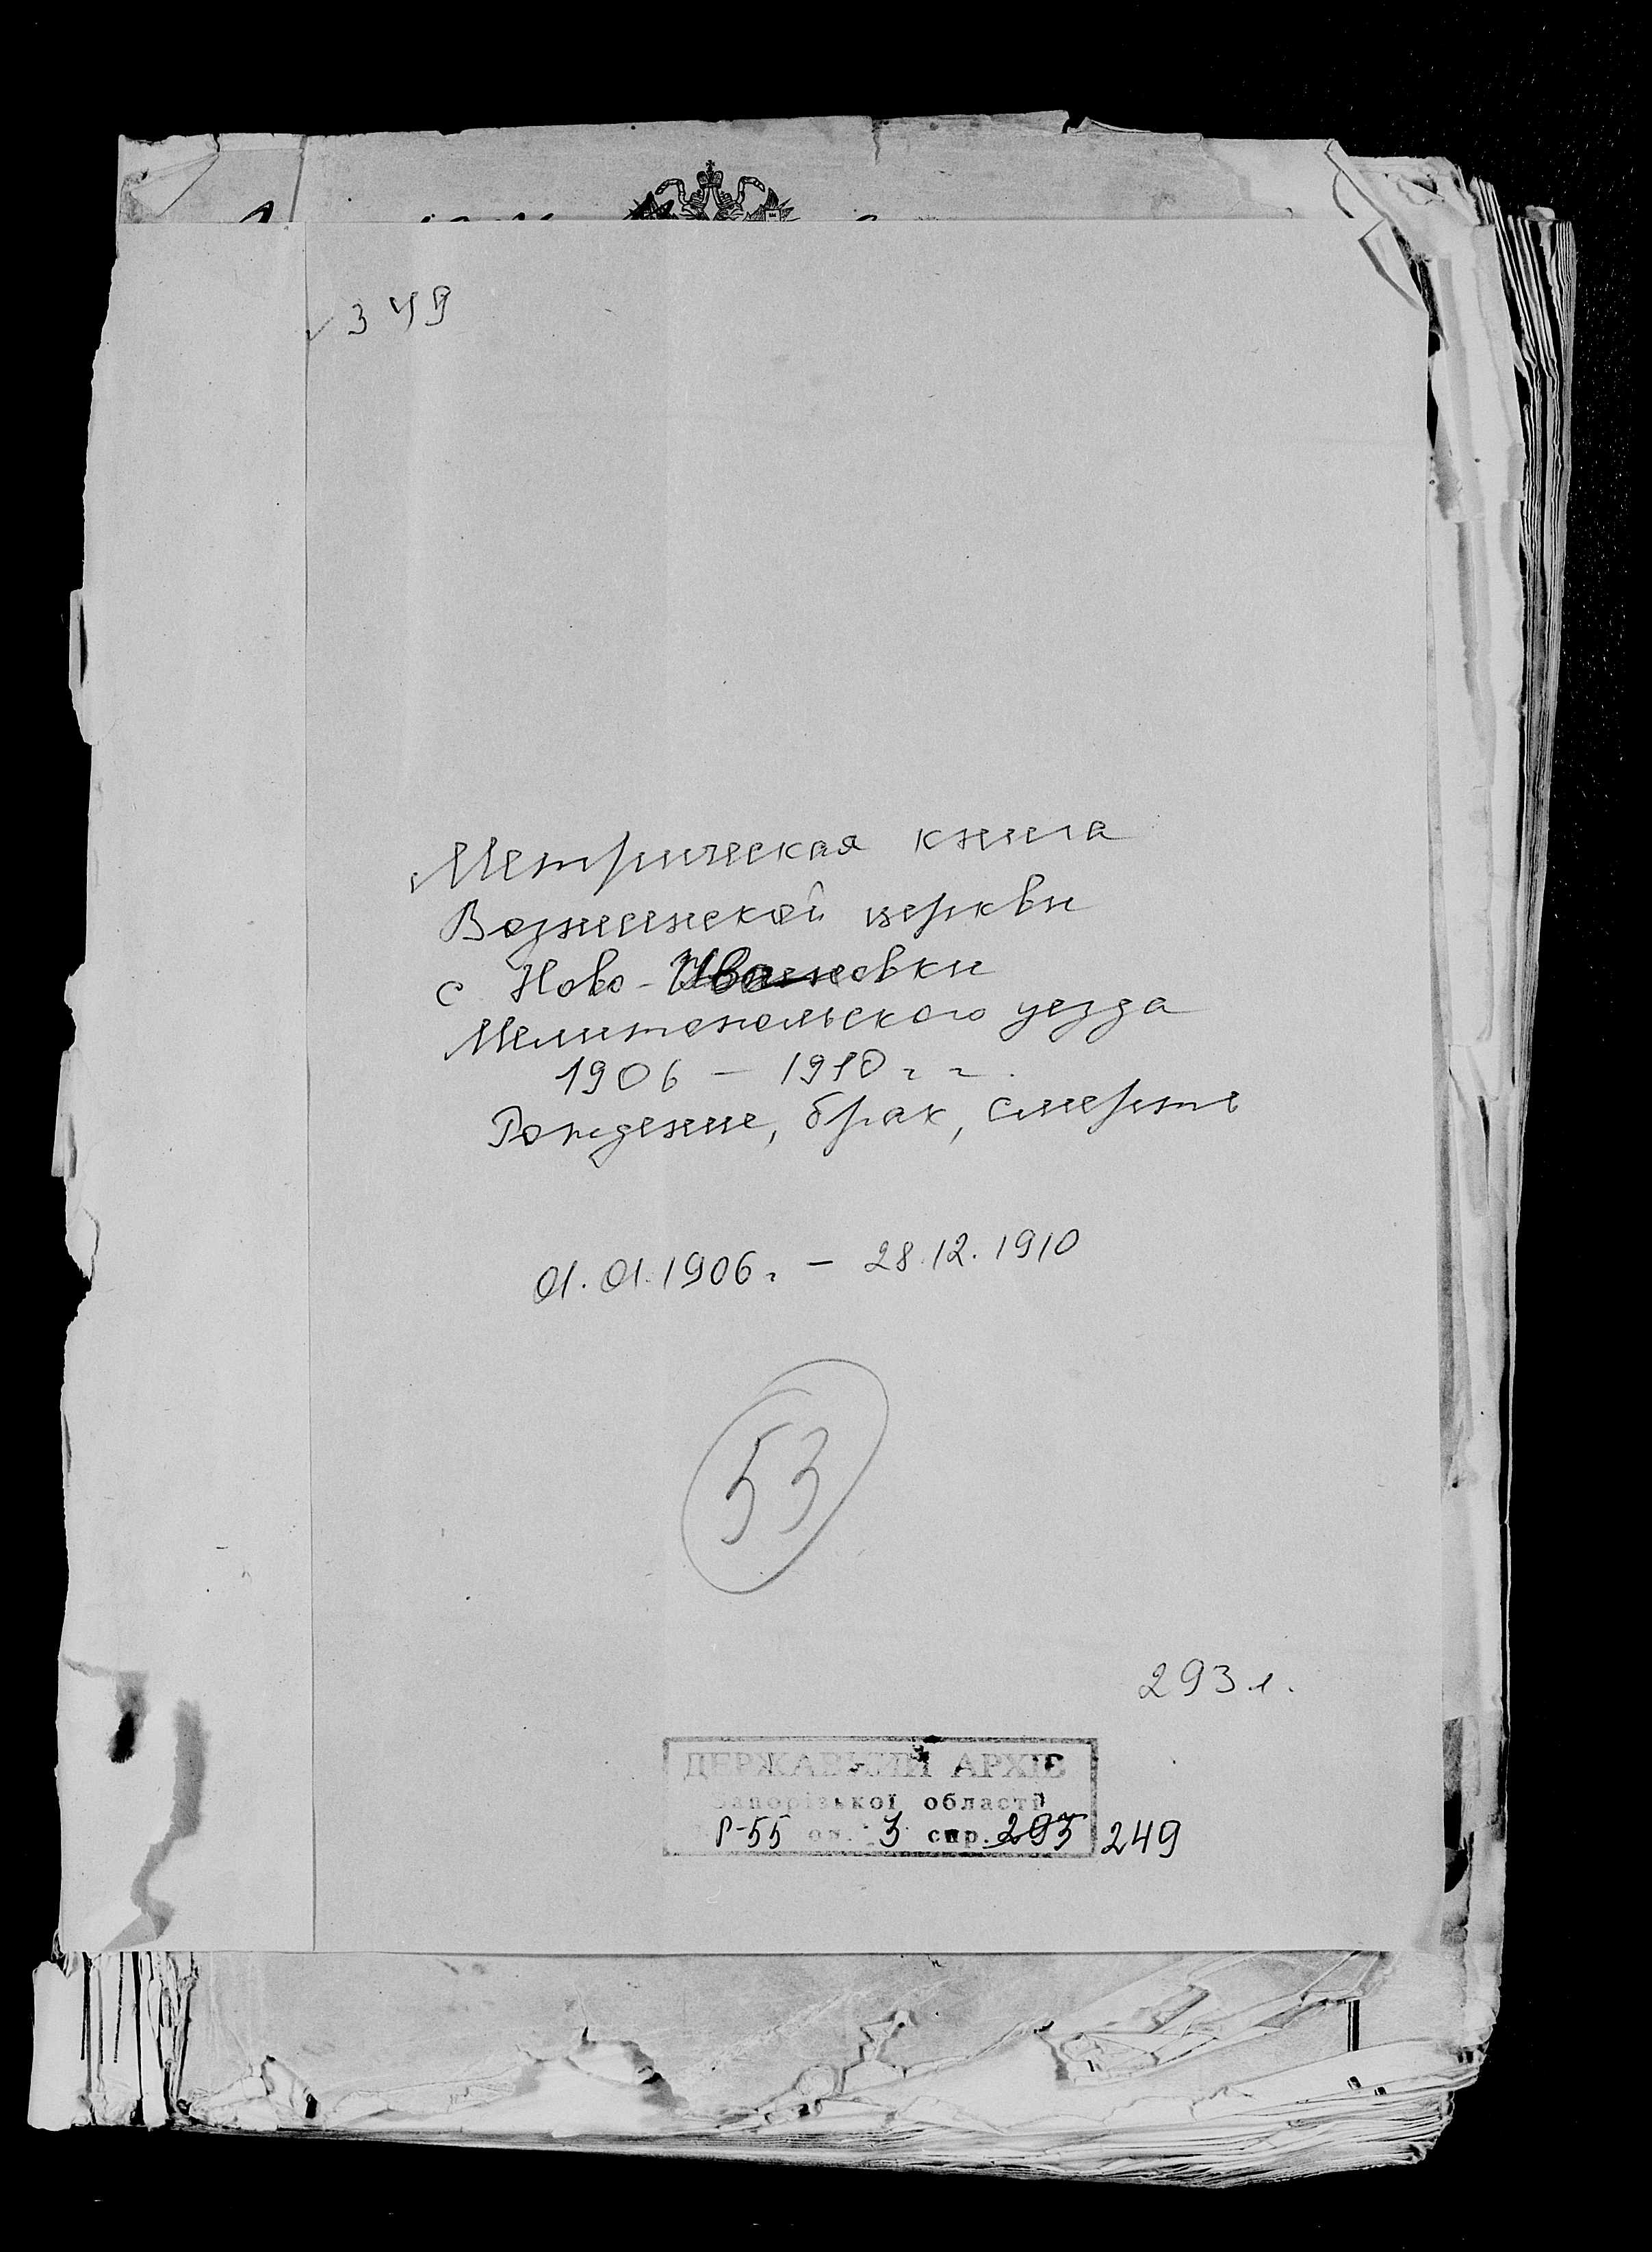 349
Метрическая книга
Вознесенской церкви
с Ново-Ивановки
Мелитопольского уезда
1906 – 1910 г г.
Рождение, брак, смерть
01.01.1906 г. – 28.12.1910
53
293 л.
ДЕРЖАВНИЙ АРХІВ
Запорізької області
Р-55 оп. 3 спр. 293 249